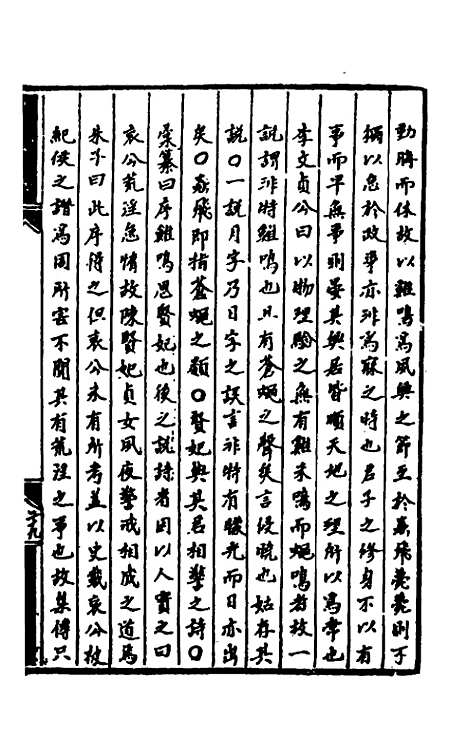 勤勝而休故以雞鳴為夙興之節至於蟲飛薨薨則可
稱以怠於政事亦非為寐之時也君子之修身不以有
事而早無事則晏其興居皆順天地之理所以為常也
李文貞公曰以物理驗之無有雞未鳴而蠅鳴者故一
說謂非特雞鳴也且有蒼蠅之聲矣言侵曉也姑存其
說〇一說月字乃日字之誤言非特有朦光而日亦出
矣〇蟲飛即指蒼蠅之類〇賢妃與其君相警之詩〇
彙纂曰序雞鳴思賢妃也後之說詩者因以人實之曰
哀公荒淫怠惰故陳賢妃貞女夙夜警戒相成之道焉
朱子曰此序得之但哀公未有所考蓋以史載哀公被
紀侯之譖為周所害不聞其有荒淫之事也故集傳只
二九